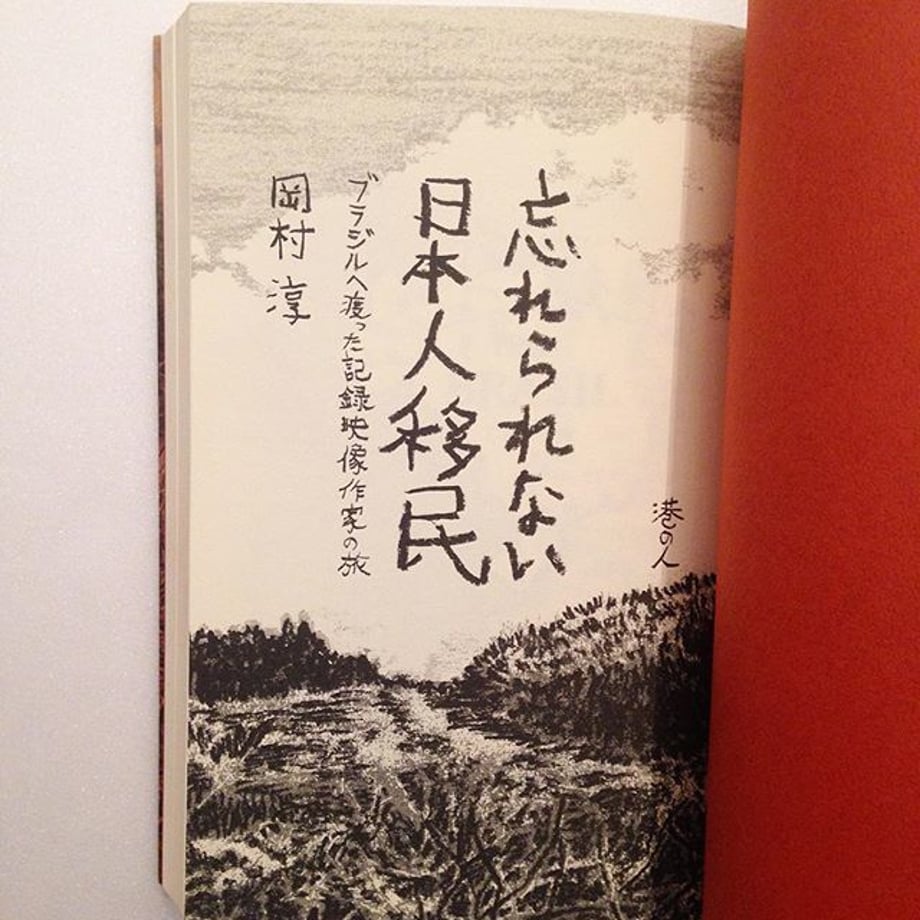 忘れられない
日本人移民
ブラジルへ渡った記録映像作家の旅
岡村淳
港の人